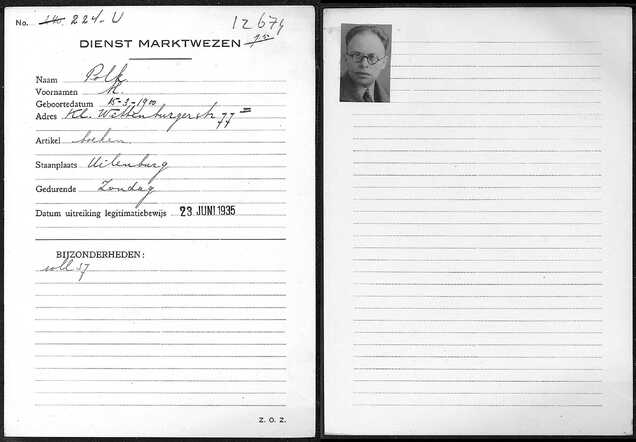 No. 224-U
12674
DIENST MARKTWEZEN
Naam Polk
Voornamen M.
Geboortedatum 15-3-1900
Adres Kl. Wittenburgerstr 77=
Artikel boeken
Staanplaats Uilenburg
Gedurende Zondag
Datum uitreiking legitimatiebewijs 23 JUNI 1935
BIJZONDERHEDEN:
Z. O. Z.